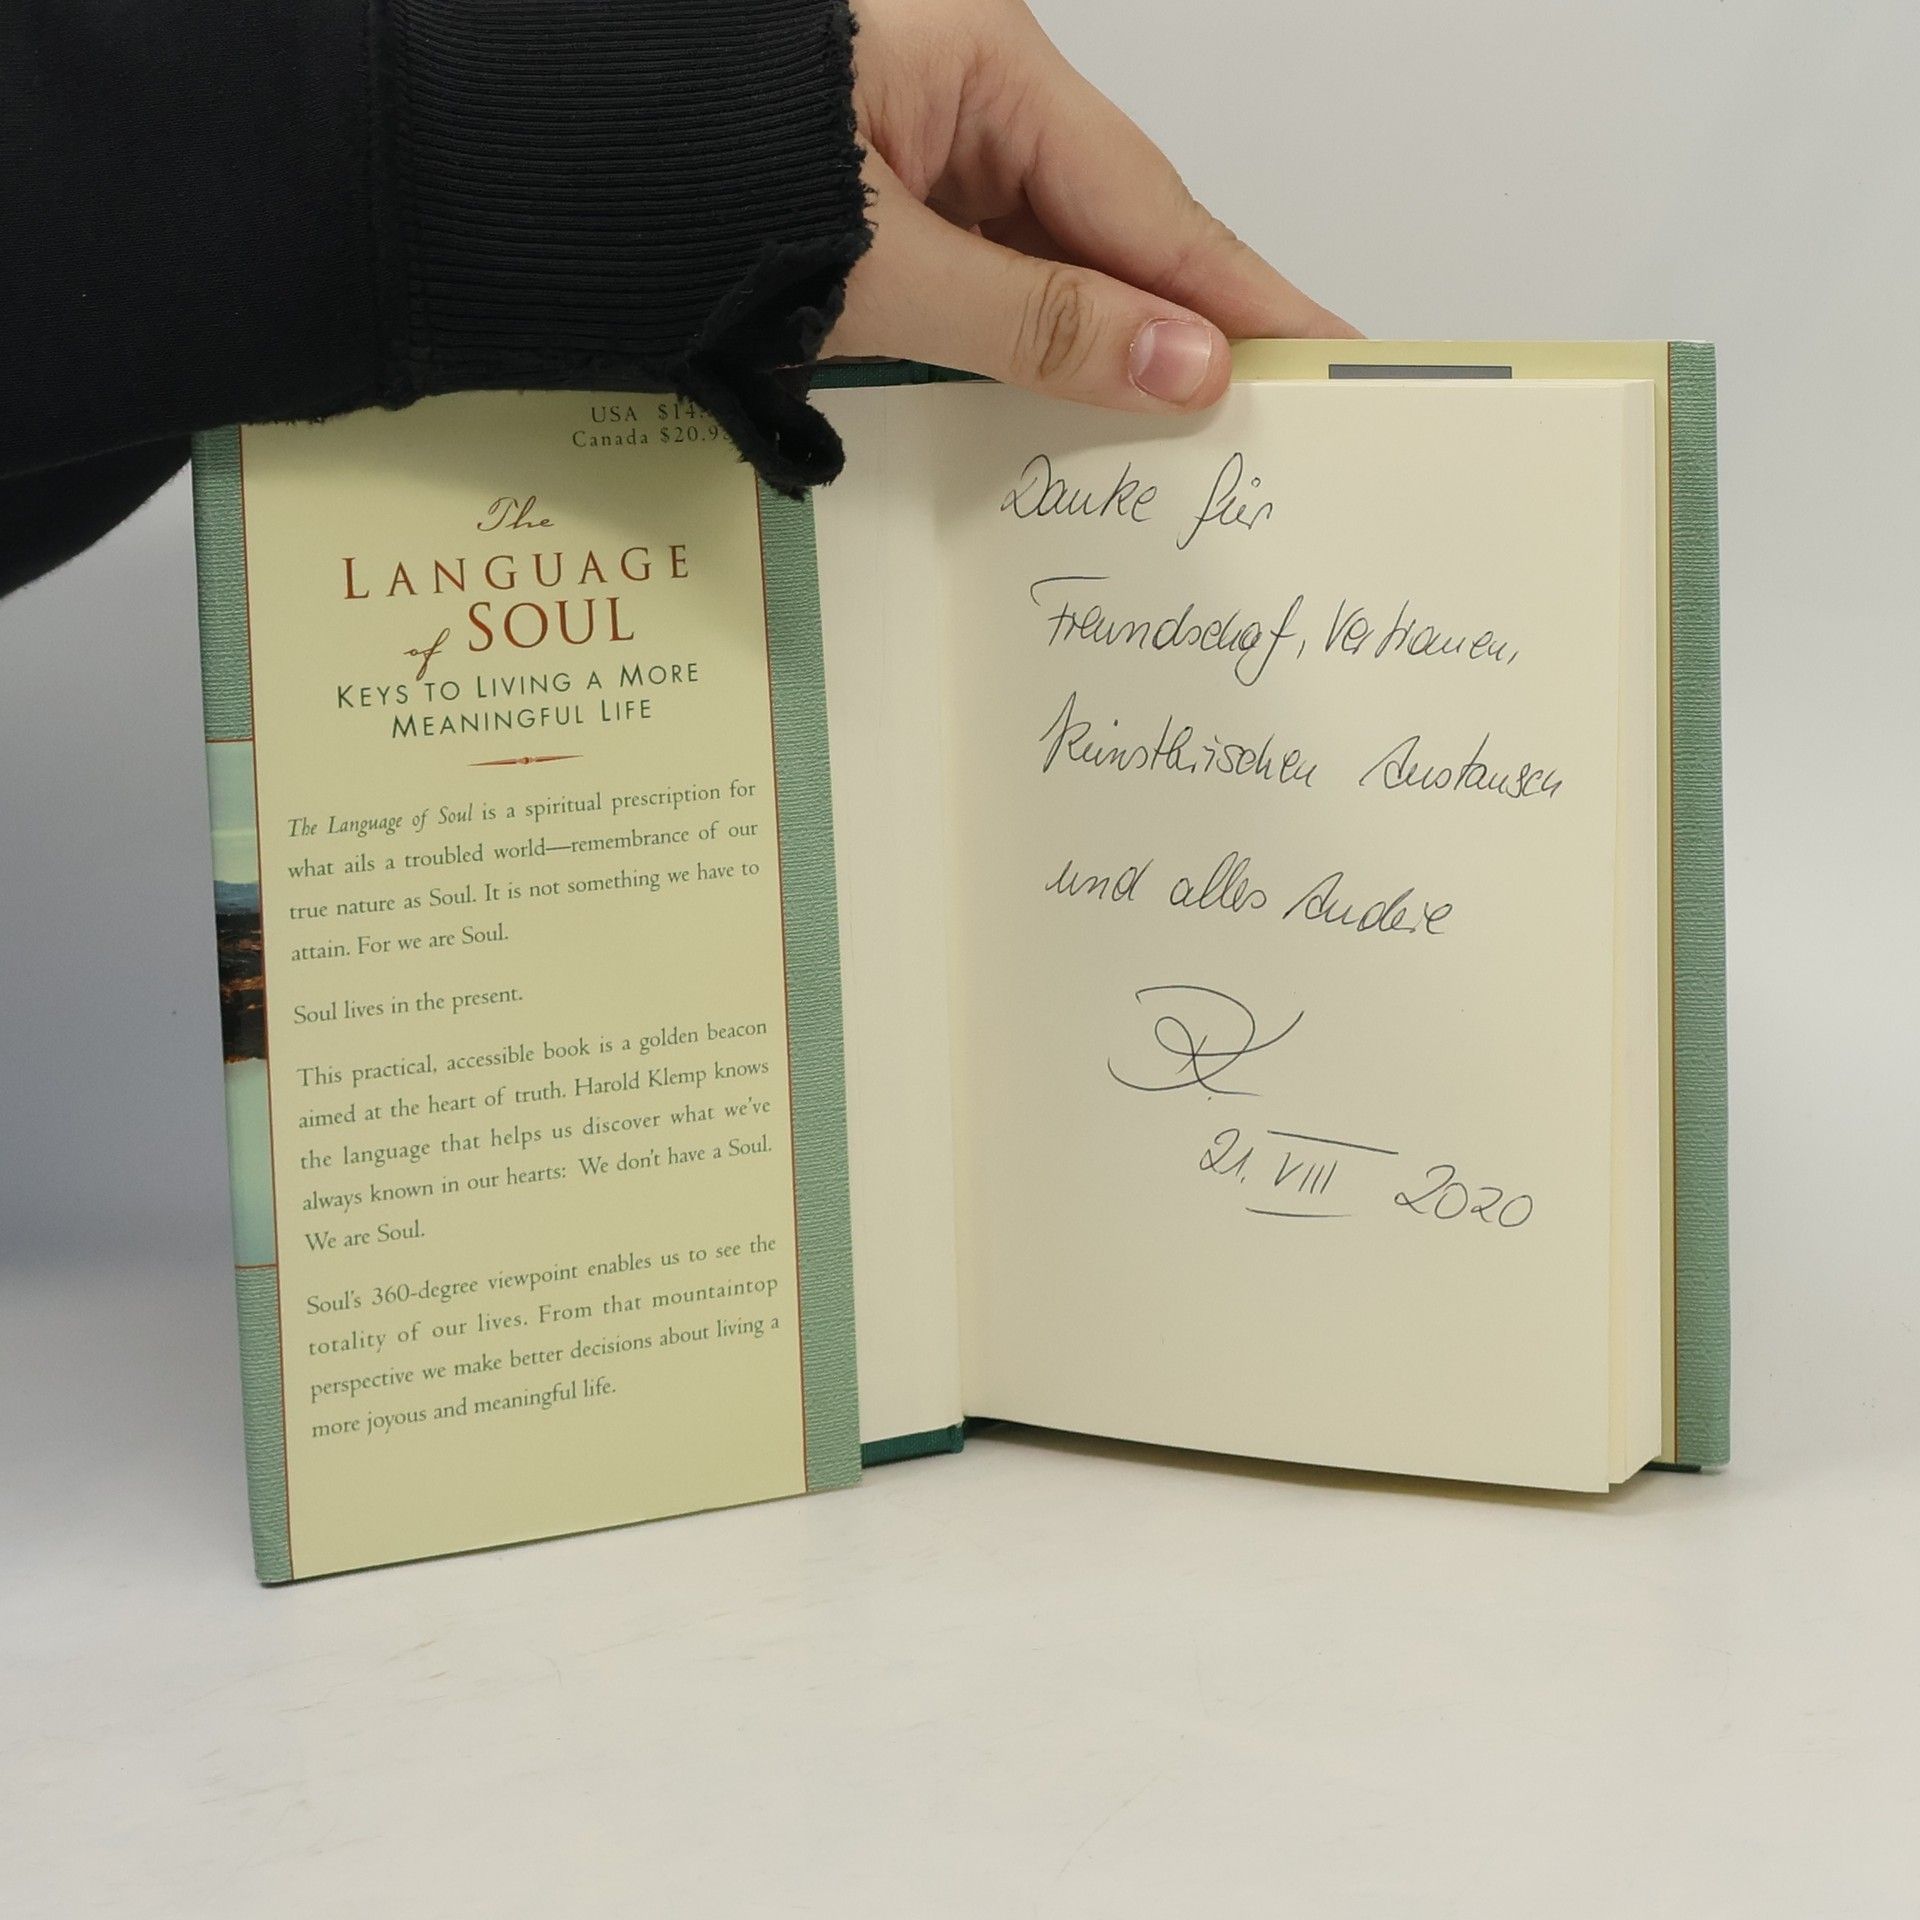 USA $14.
Canada $20.9
The
LANGUAGE
of SOUL
KEYS TO LIVING A MORE
MEANINGFUL LIFE
The Language of Soul is a spiritual prescription for
what ails a troubled world—remembrance of our
true nature as Soul. It is not something we have to
attain. For we are Soul.
Soul lives in the present.
This practical, accessible book is a golden beacon
aimed at the heart of truth. Harold Klemp knows
the language that helps us discover what we've
always known in our hearts: We don't have a Soul.
We are Soul.
Soul's 360-degree viewpoint enables us to see the
totality of our lives. From that mountaintop
perspective we make better decisions about living a
more joyous and meaningful life.
Danke für
Freundschaf, Vertrauen,
künstlerischen Austausch
und alles Andere
21. VIII 2020